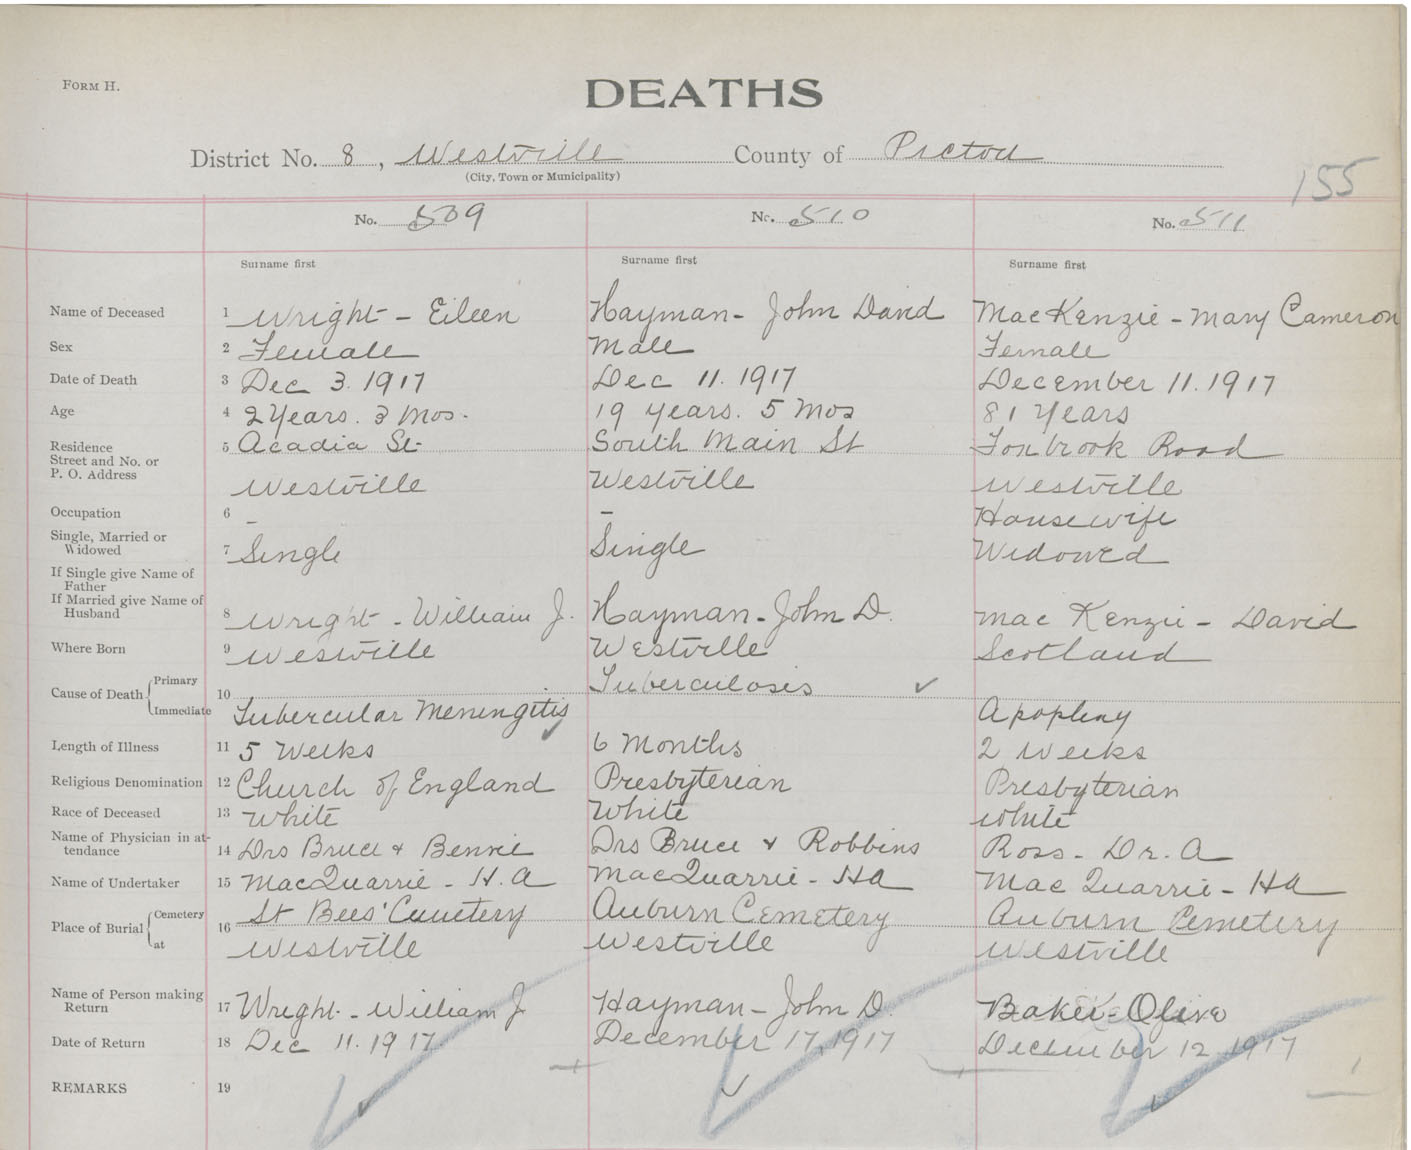 FORM H.
DEATHS
District No. 8, Westville County of Pictou
(City, Town or Municipality)
155
No. 509 No. 510 No. 511
Surname first Surname first Surname first
Name of Deceased 1 Wright - Eileen Hayman - John David MacKenzie - Mary Cameron
Sex 2 Female Male Female
Date of Death 3 Dec 3. 1917 Dec 11. 1917 December 11. 1917
Age 4 2 Years. 3 Mos. 19 Years. 5 Mos 81 Years
Residence 5 Acadia St. South Main St Foxbrook Road
Street and No. or
P. O. Address Westville Westville Westville
Occupation 6 - - Housewife
Single, Married or
Widowed 7 Single Single Widowed
If Single give Name of
Father
If Married give Name of
Husband 8 Wright - William J. Hayman - John D. Mac Kenzie - David
Where Born 9 Westville Westville Scotland
Cause of Death Primary 10 Tuberculosis ✓
Immediate Tubercular Meningitis ✓ Apoplexy
Length of Illness 11 5 Weeks 6 Months 2 Weeks
Religious Denomination 12 Church of England Presbyterian Presbyterian
Race of Deceased 13 White White White
Name of Physician in at-
tendance 14 Drs Bruce & Benvie Drs Bruce & Robbins Ross - Dr. A
Name of Undertaker 15 MacQuarrie - H. A MacQuarrie - HA Mac Quarrie - HA
Place of Burial Cemetery 16 St Bees' Cemetery Auburn Cemetery Auburn Cemetery
at Westville Westville Westville
Name of Person making
Return 17 Wright - William J Hayman - John D. Baker - Olive
Date of Return 18 Dec 11. 1917. December 17, 1917 December 12 1917
REMARKS 19